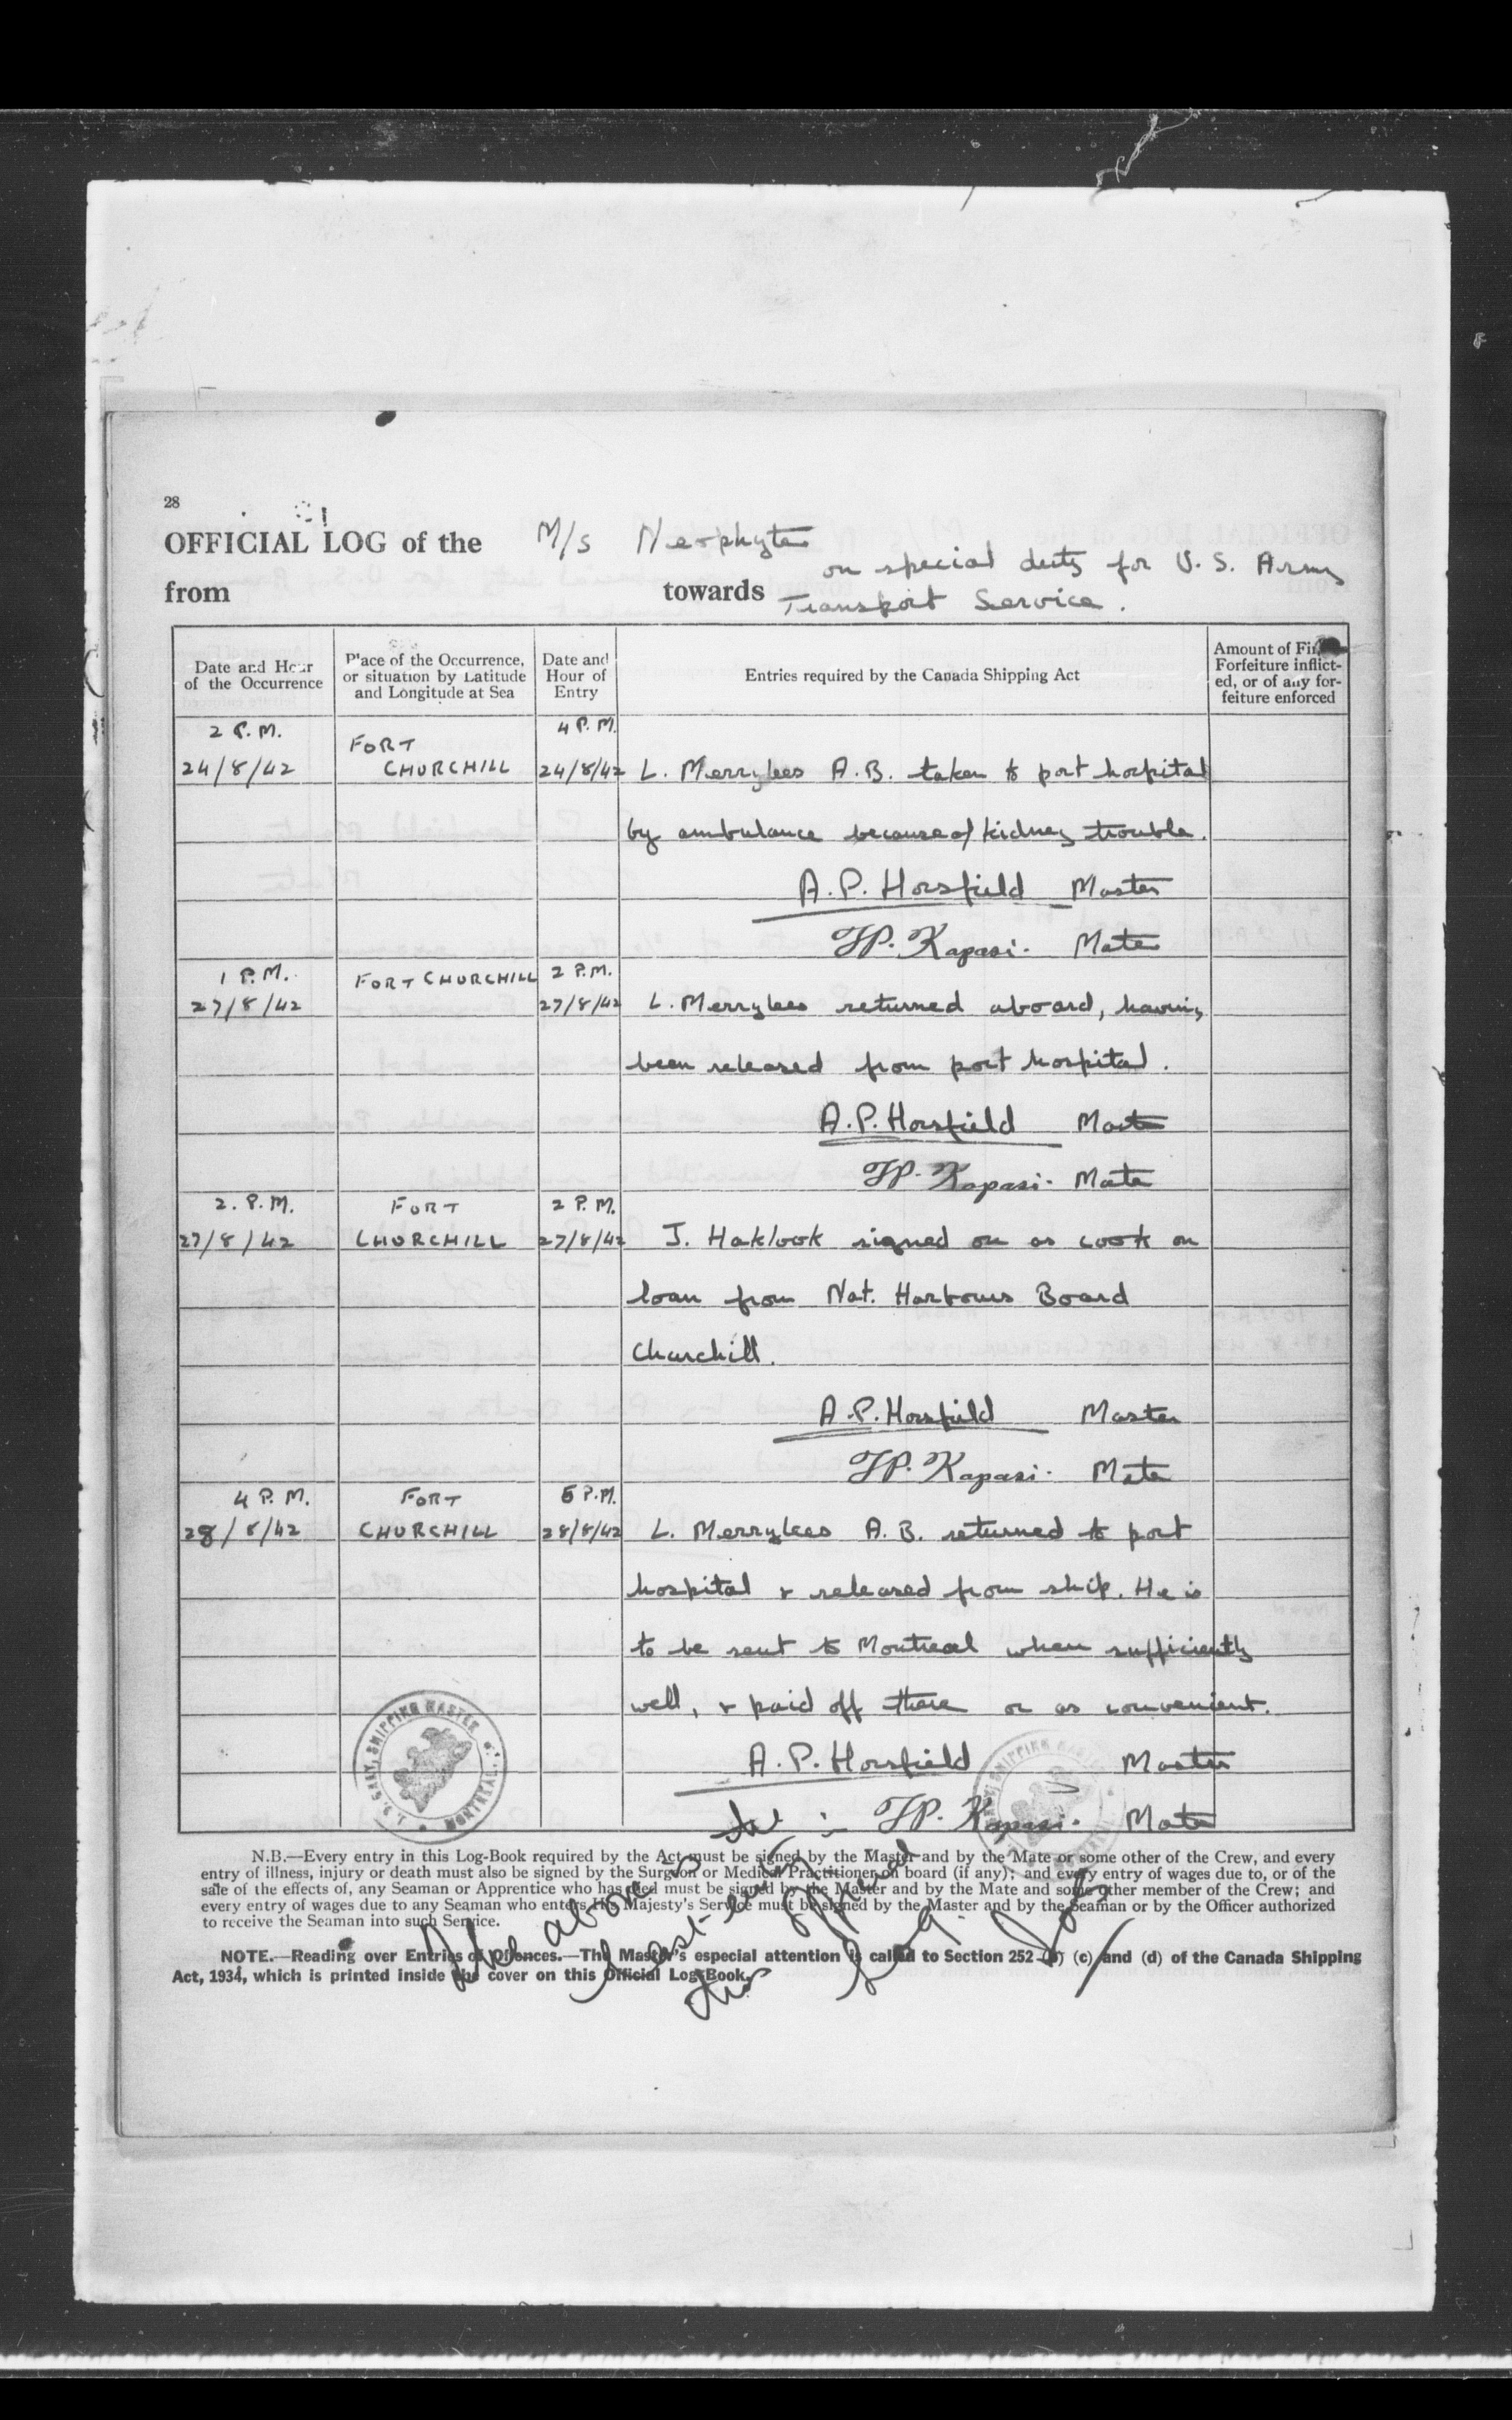 28
OFFICIAL LOG of the M/s Neophyte
on special duty for U.S. Army
from towards Transport Service.
Date and Hour of the Occurrence
Place of the Occurrence, or situation by Latitude and Longitude at Sea
Date and Hour of Entry
Entries required by the Canada Shipping Act
Amount of Fine Forfeiture inflict-ed, or of any for-feiture enforced
2 P.M. FORT 4 P.M.
24/8/42 CHURCHILL 24/8/42 L. Merrylees A.B. taken to port hospital
by ambulance because of kidney trouble.
A.P. Horsfield Master
J.P. Kapasi. Mate
1 P.M. FORT CHURCHILL 2 P.M.
27/8/42 27/8/42 L. Merrylees returned aboard, having
been released from port hospital.
A.P. Horsfield Master
J.P. Kapasi. Mate
2. P.M. FORT 2 P.M.
27/8/42 CHURCHILL 27/8/42 J. Haklook signed on as cook on
loan from Nat. Harbours Board
Churchill.
A.P. Horsfield Master
J.P. Kapasi. Mate
4 P.M. FORT 5 P.M.
28/8/42 CHURCHILL 28/8/42 L. Merrylees A.B. returned to port
hospital & released from ship. He is
to be sent to Montreal when sufficiently
well, & paid off there or as convenient.
A.P. Horsfield Master
J.P. Kapasi. Mate
SHIPPING MASTER MONTREAL
N.B.—Every entry in this Log-Book required by the Act must be signed by the Master and by the Mate or some other of the Crew, and every
entry of illness, injury or death must also be signed by the Surgeon or Medical Practitioner on board (if any); and every entry of wages due to, or of the
sale of the effects of, any Seaman or Apprentice who has died must be signed by the Master and by the Mate and some other member of the Crew; and
every entry of wages due to any Seaman who enters His Majesty's Service must be signed by the Master and by the Seaman or by the Officer authorized
to receive the Seaman into such Service.
NOTE.—Reading over Entries of Offences.—The Master's especial attention is called to Section 252 (b) (c) and (d) of the Canada Shipping
Act, 1934, which is printed inside the cover on this Official Log-Book.
The above is the
last entry in
this Log